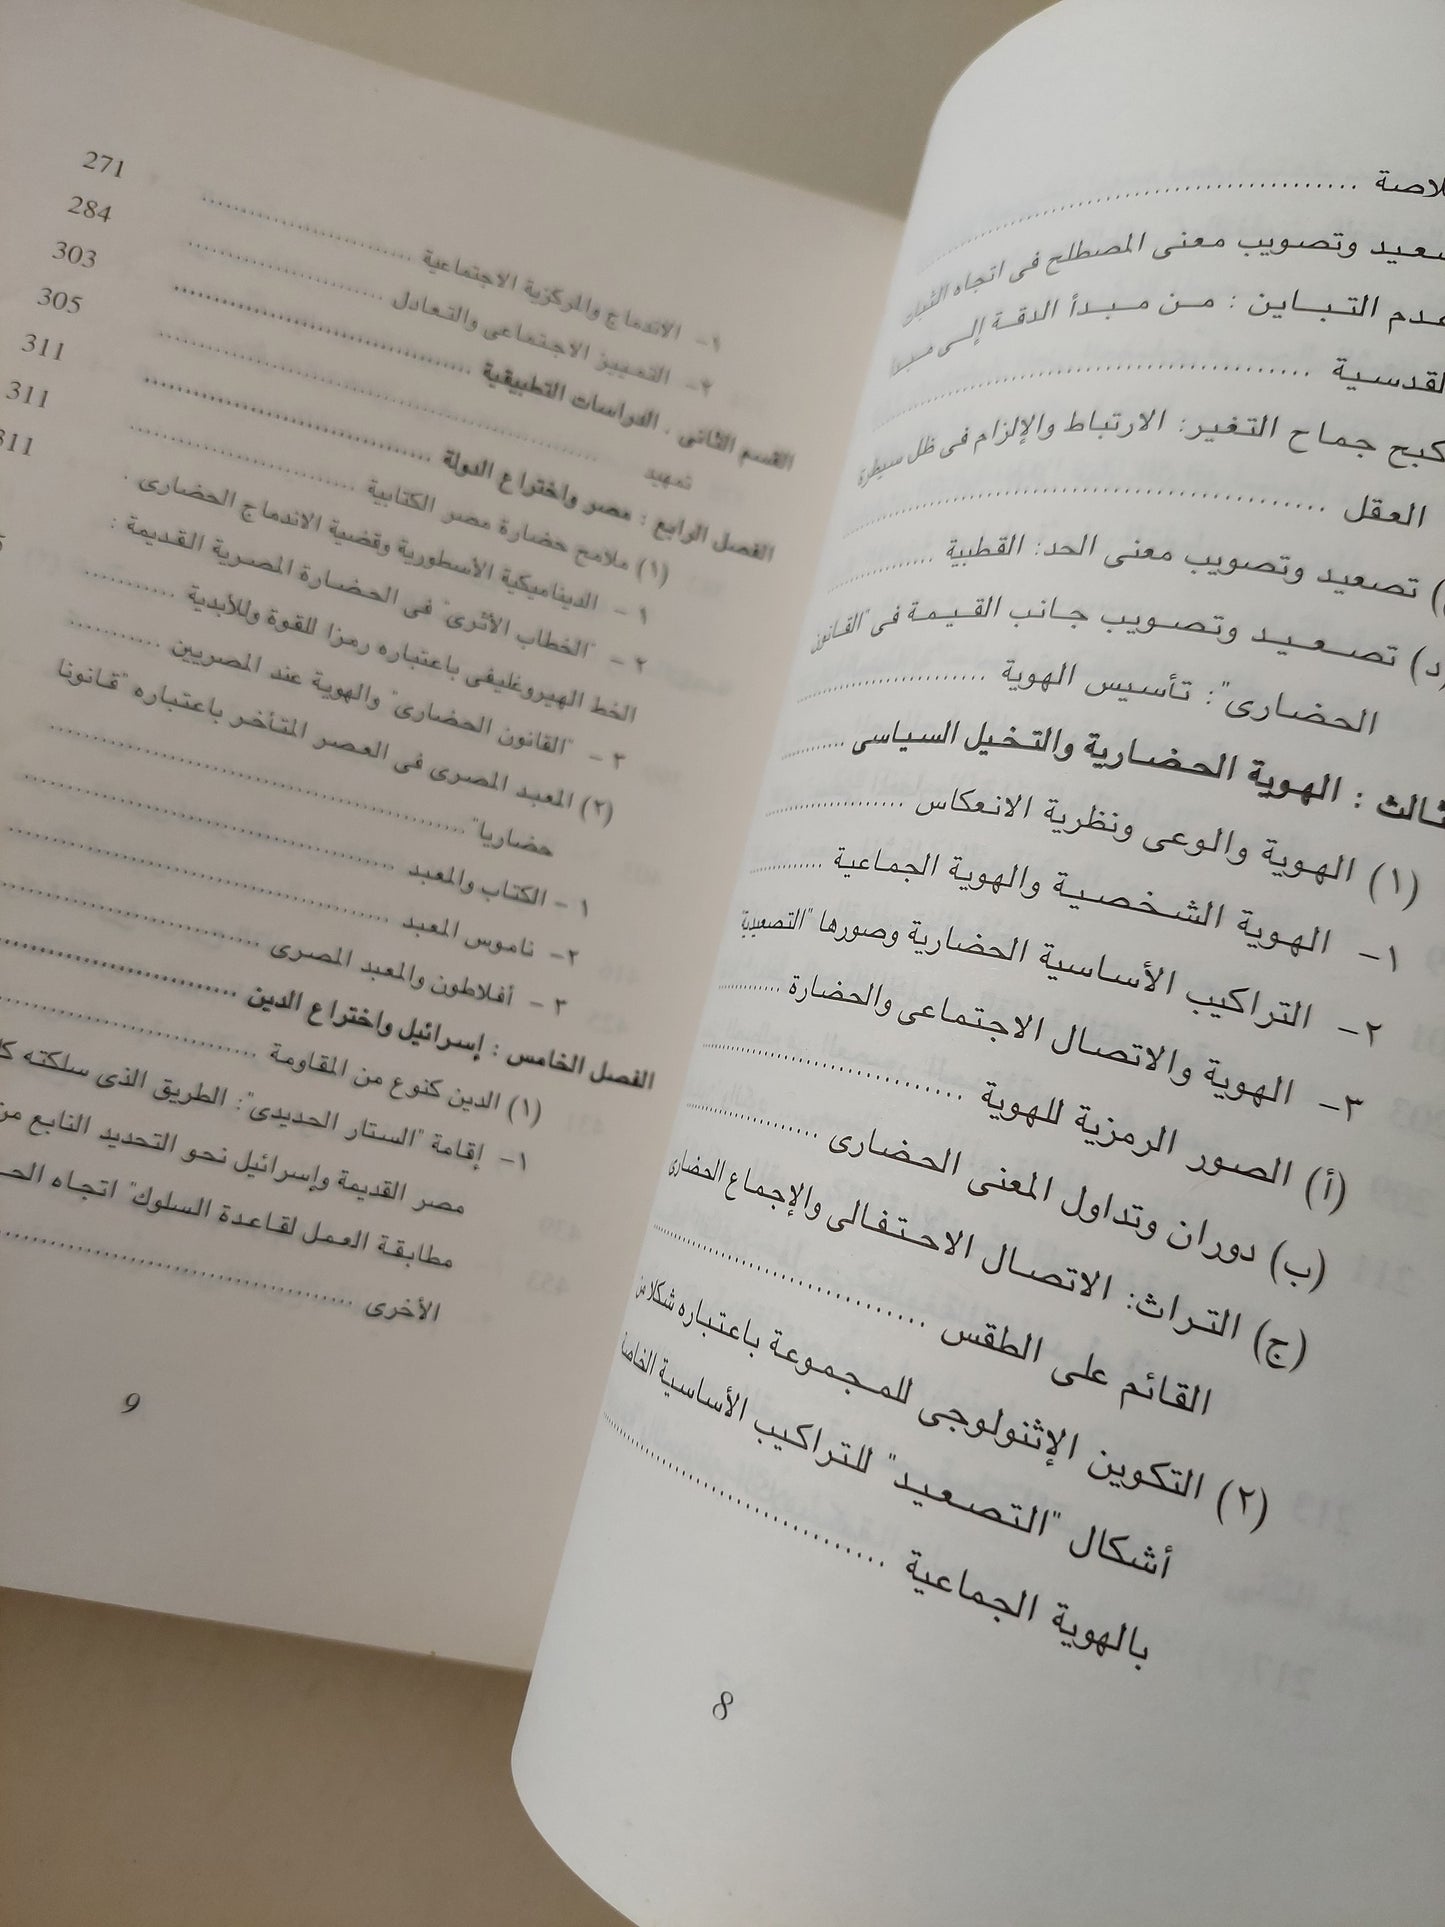 لاصة
سعيد وتصويب معنى المصطلح فى اتجاه الثبات
عدم التباين : من مبدأ الدقة إلى مبدأ
القدسية
كبح جماح التغير: الارتباط والإلزام فى ظل سيطرة
العقل
) تصعيد وتصويب معنى الحد: القطبية
(د) تصعيد وتصويب جانب القيمة فى "القانون
الحضارى": تأسيس الهوية
ثالث : الهوية الحضارية والتخيل السياسى
(١) الهوية والوعى ونظرية الانعكاس
١- الهوية الشخصية والهوية الجماعية
٢- التراكيب الأساسية الحضارية وصورها "التصعيدية
٣- الهوية والاتصال الاجتماعى والحضارة
(أ) الصور الرمزية للهوية
(ب) دوران وتداول المعنى الحضارى
(ج) التراث: الاتصال الاحتفالى والإجماع الحضارى
القائم على الطقس
(٢) التكوين الإثنولوجى للمجموعة باعتباره شكلا من
أشكال "التصعيد" للتراكيب الأساسية الخاصة
بالهوية الجماعية
8
١- الاندماج والمركزية الاجتماعية 271
٢- التمييز الاجتماعى والتعادل 284
القسم الثانى . الدراسات التطبيقية 303
تمهيد 305
الفصل الرابع : مصر واختراع الدولة 311
(١) ملامح حضارة مصر الكتابية 311
١ - الديناميكية الأسطورية وقضية الاندماج الحضارى . 311
٢ - "الخطاب الأثرى" فى الحضارة المصرية القديمة :
الخط الهيروغليفى باعتباره رمزا للقوة وللأبدية
٣ - "القانون الحضارى" والهوية عند المصريين
(٢) المعبد المصرى فى العصر المتأخر باعتباره "قانونا
حضاريا"
١ - الكتاب والمعبد
٢- ناموس المعبد
٣ - أفلاطون والمعبد المصرى
الفصل الخامس : إسرائيل واختراع الدين
(١) الدين كنوع من المقاومة
١- إقامة "الستار الحديدى": الطريق الذى سلكته
مصر القديمة وإسرائيل نحو التحديد النابع من
مطابقة العمل لقاعدة السلوك" اتجاه
الأخرى
9